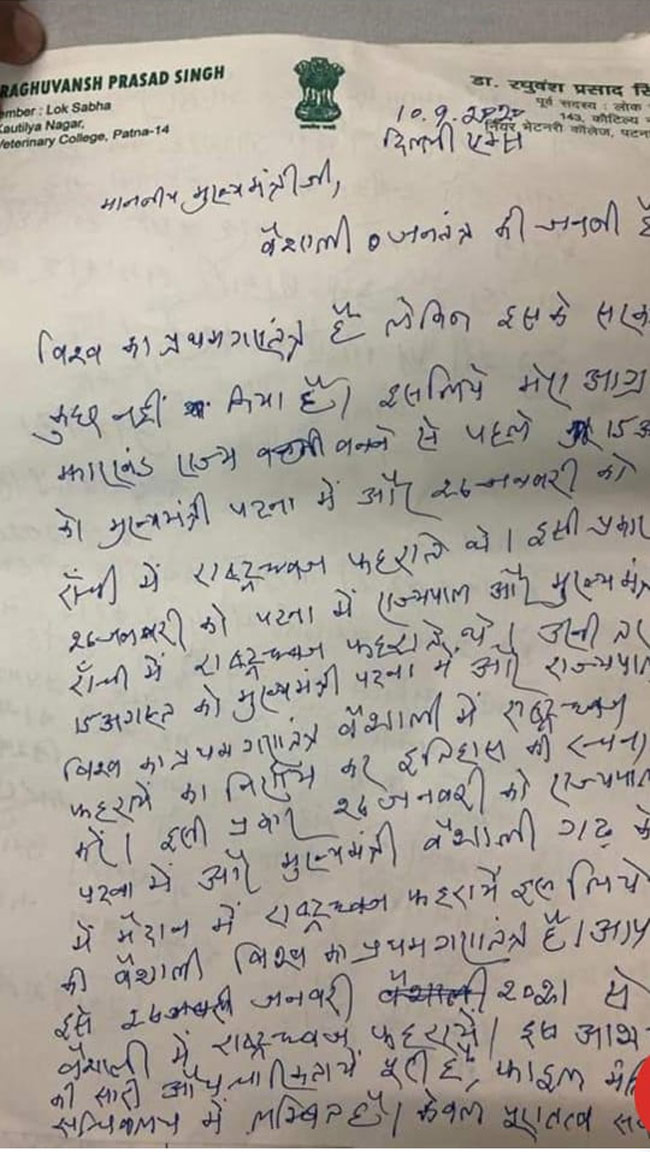 RAGHUVANSH PRASAD SINGH
ember : Lok Sabha
Kautilya Nagar,
Veterinary College, Patna-14
डा. रघुवंश प्रसाद सि
पूर्व सदस्य : लोक
143, कौटिल्य न
नियर भेटनरी कॉलेज, पटन
10.9.2020
दिल्ली एम्स
माननीय मुख्यमंत्री जी,
वैशाली जनतंत्र की जननी है
विश्व का प्रथम गणतंत्र है लेकिन इसके सरका
कुछ नहीं किया है। इसलिये मेरा आग्र
झारखंड राज्य बनने से पहले 15 अ
को मुख्यमंत्री पटना में और 26 जनवरी को
राँची में राष्ट्रध्वज फहराते थे। इसी प्रकार
26 जनवरी को पटना में राज्यपाल और मुख्यमंत्र
राँची में राष्ट्रध्वज फहराते थे। उसी तर
15 अगस्त को मुख्यमंत्री पटना में और राज्यपाल
विश्व का प्रथम गणतंत्र वैशाली में राष्ट्रध्वज
फहराने का निर्णय कर इतिहास की रचना
करें। इसी प्रकार 26 जनवरी को राज्यपाल
पटना में और मुख्यमंत्री वैशाली गढ़ के
में मैदान में राष्ट्रध्वज फहरायें इस लिये
की वैशाली विश्व का प्रथम गणतंत्र है। आप
इसे 26 जनवरी 2021 से
वैशाली में राष्ट्रध्वज फहरायें। इस आश
की सारी औपचारिकतायें पूरी है, फाइल मं
सचिवालय में लम्बित है। केवल पुरातत्व सर्व